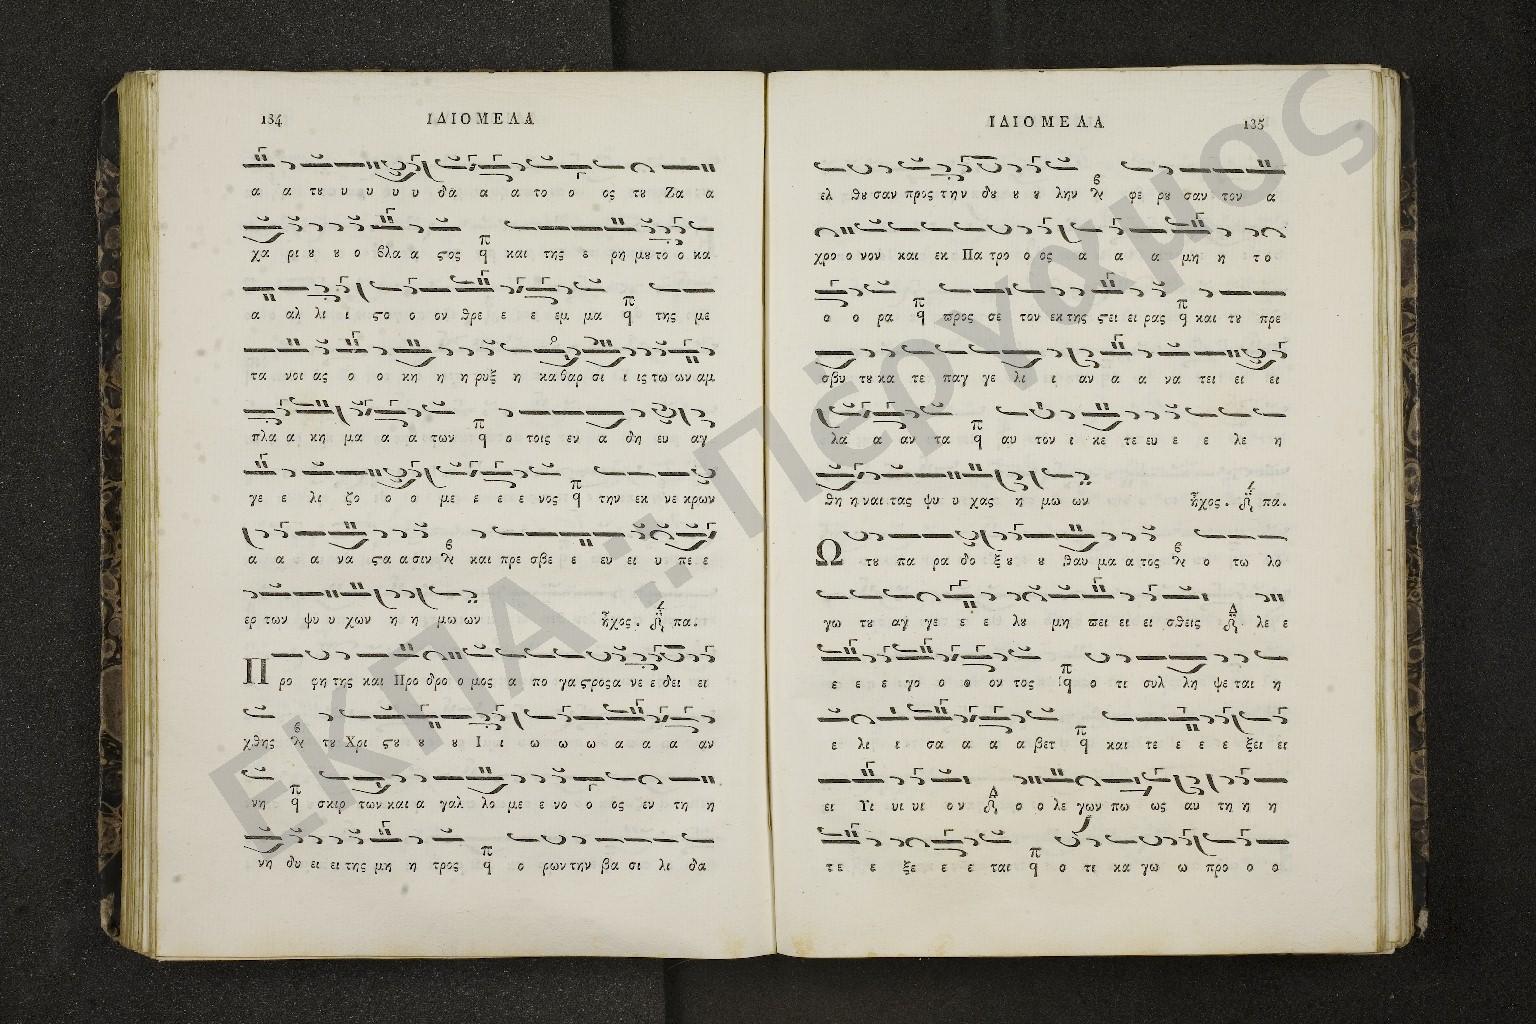 134
ΙΔΙΟΜΕΛΑ
α α τȣ υ υ υ υ δα α α το ο ος τȣ Ζα α
χα ρι ȣ ȣ ο βλα α ϛος και της ε ρη μȣ το ο κα
α αλ λι ι ϛο ο ον θρε ε ε εμ μα της με
τα νοι ας ο ο κη η η ρυξ η κα θαρ σι ι ις τω ων αμ
πλα α κη μα α α των ο τοις εν α δη ευ αγ
γε ε λι ζο ο ο με ε ε ε νος την εκ νε κρων
α α α να ϛα α σιν και πρε σβε ε ευ ει υ πε ε
ερ των ψυ υ χων η η μω ων ἦχος. πα.
Προ φη της και Προ δρο ο μος α πο γα ϛρος α νε ε δει ει
χθης τȣ Χρι ϛȣ ȣ ȣ Ι ι ω ω ω α α α αν
νη σκιρ των και α γαλ λο με ε νο ο ος εν τη η
νη δυ ει ει της μη η τρος ο ρων την βα σι λι δα
ΙΔΙΟΜΕΛΑ
135
ελ θȣ σαν προς την δȣ ȣ ȣ λην φε ρȣ σαν τον α
χρο ο νον και εκ Πα τρο ο ος α α α μη η το
ο ο ρα προς σε τον εκ της ϛει ει ρας και τȣ πρε
σβυ τȣ κα τε παγ γε λι ι αν α α να τει ει ει
λα α αν τα αυ τον ι κε τε ευ ε ε λε η
θη η ναι τας ψυ υ χας η μω ων ἦχος. πα.
Ω τȣ πα ρα δο ξȣ ȣ θαυ μα α τος ο τω λο
γω τȣ αγ γε ε ε λȣ μη πει ει ει σθεις λε ε
ε ε ε γο ο ο ον τος ο τι συλ λη ψε ται η
ε λι ι σα α α α βετ και τε ε ε ε ξει ει
ει Υι υι υι ο ν ο ο λε γων πω ως αυ τη η η
τε ε ξε ε ε ται ο τι κα γω ω προ ο ο
ΕΚΠΑ :: Πέργαμος